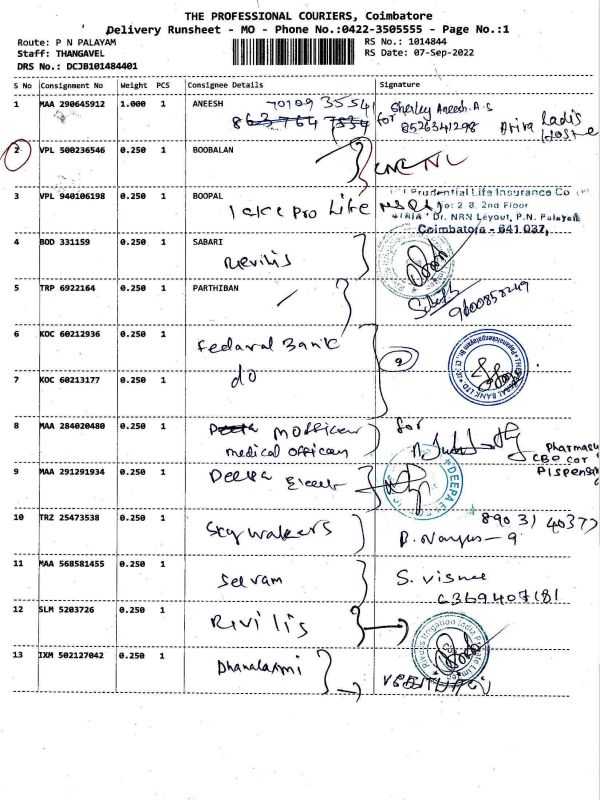 THE PROFESSIONAL COURIERS, Coimbatore
Delivery Runsheet - MO - Phone No.:0422-3505555 - Page No.:1
Route: P N PALAYAM
RS No.: 1014844
Staff: THANGAVEL
RS Date: 07-Sep-2022
DRS No.: DCJB101484401
S No Consignment No Weight PCS Consignee Details Signature
1 MAA 290645912 1.000 1 ANEESH 7010935541 for Sherley Aneesh.A.S
8637647534 8526341298
2 VPL 500236546 0.250 1 BOOBALAN
3 VPL 940106198 0.250 1 BOOPAL Prudential Life Insurance Co
Life No: 2 & 3, 2nd Floor
Dr. NRN Layout, P.N. Palayam
Coimbatore - 641 037,
4 BOD 331159 0.250 1 SABARI
Revilis
5 TRP 6922164 0.250 1 PARTHIBAN
9600858249
6 KOC 60212936 0.250 1
Fedaral Bank 2
7 KOC 60213177 0.250 1 do
8 MAA 284020480 0.250 1 M officer for
medical officer Pharmacy
9 MAA 291291934 0.250 1 Deepa DEEPA
10 TRZ 25473538 0.250 1 89031 40377
Skywalkers
11 MAA 568581455 0.250 1
Selvam 6369407181
12 SLM 5203726 0.250 1
Rivilis Rivulis Irrigation India Private Limited
13 IXM 502127042 0.250 1
Dhanalaxmi